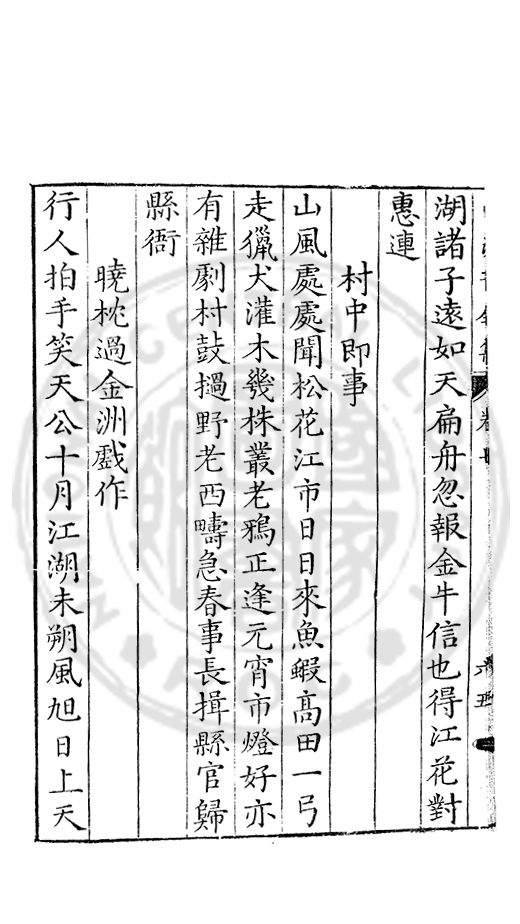 湖諸子遠如天扁舟忽報金牛信也得江花對
惠連
村中即事
山風處處聞松花江市日日來魚蝦高田一弓
走獵犬灌木幾株叢老鴉正逢元宵市燈好亦
有雜劇村鼓撾野老西疇急春事長揖縣官歸
縣衙
曉枕過金洲戲作
行人拍手笑天公十月江湖未朔風旭日上天